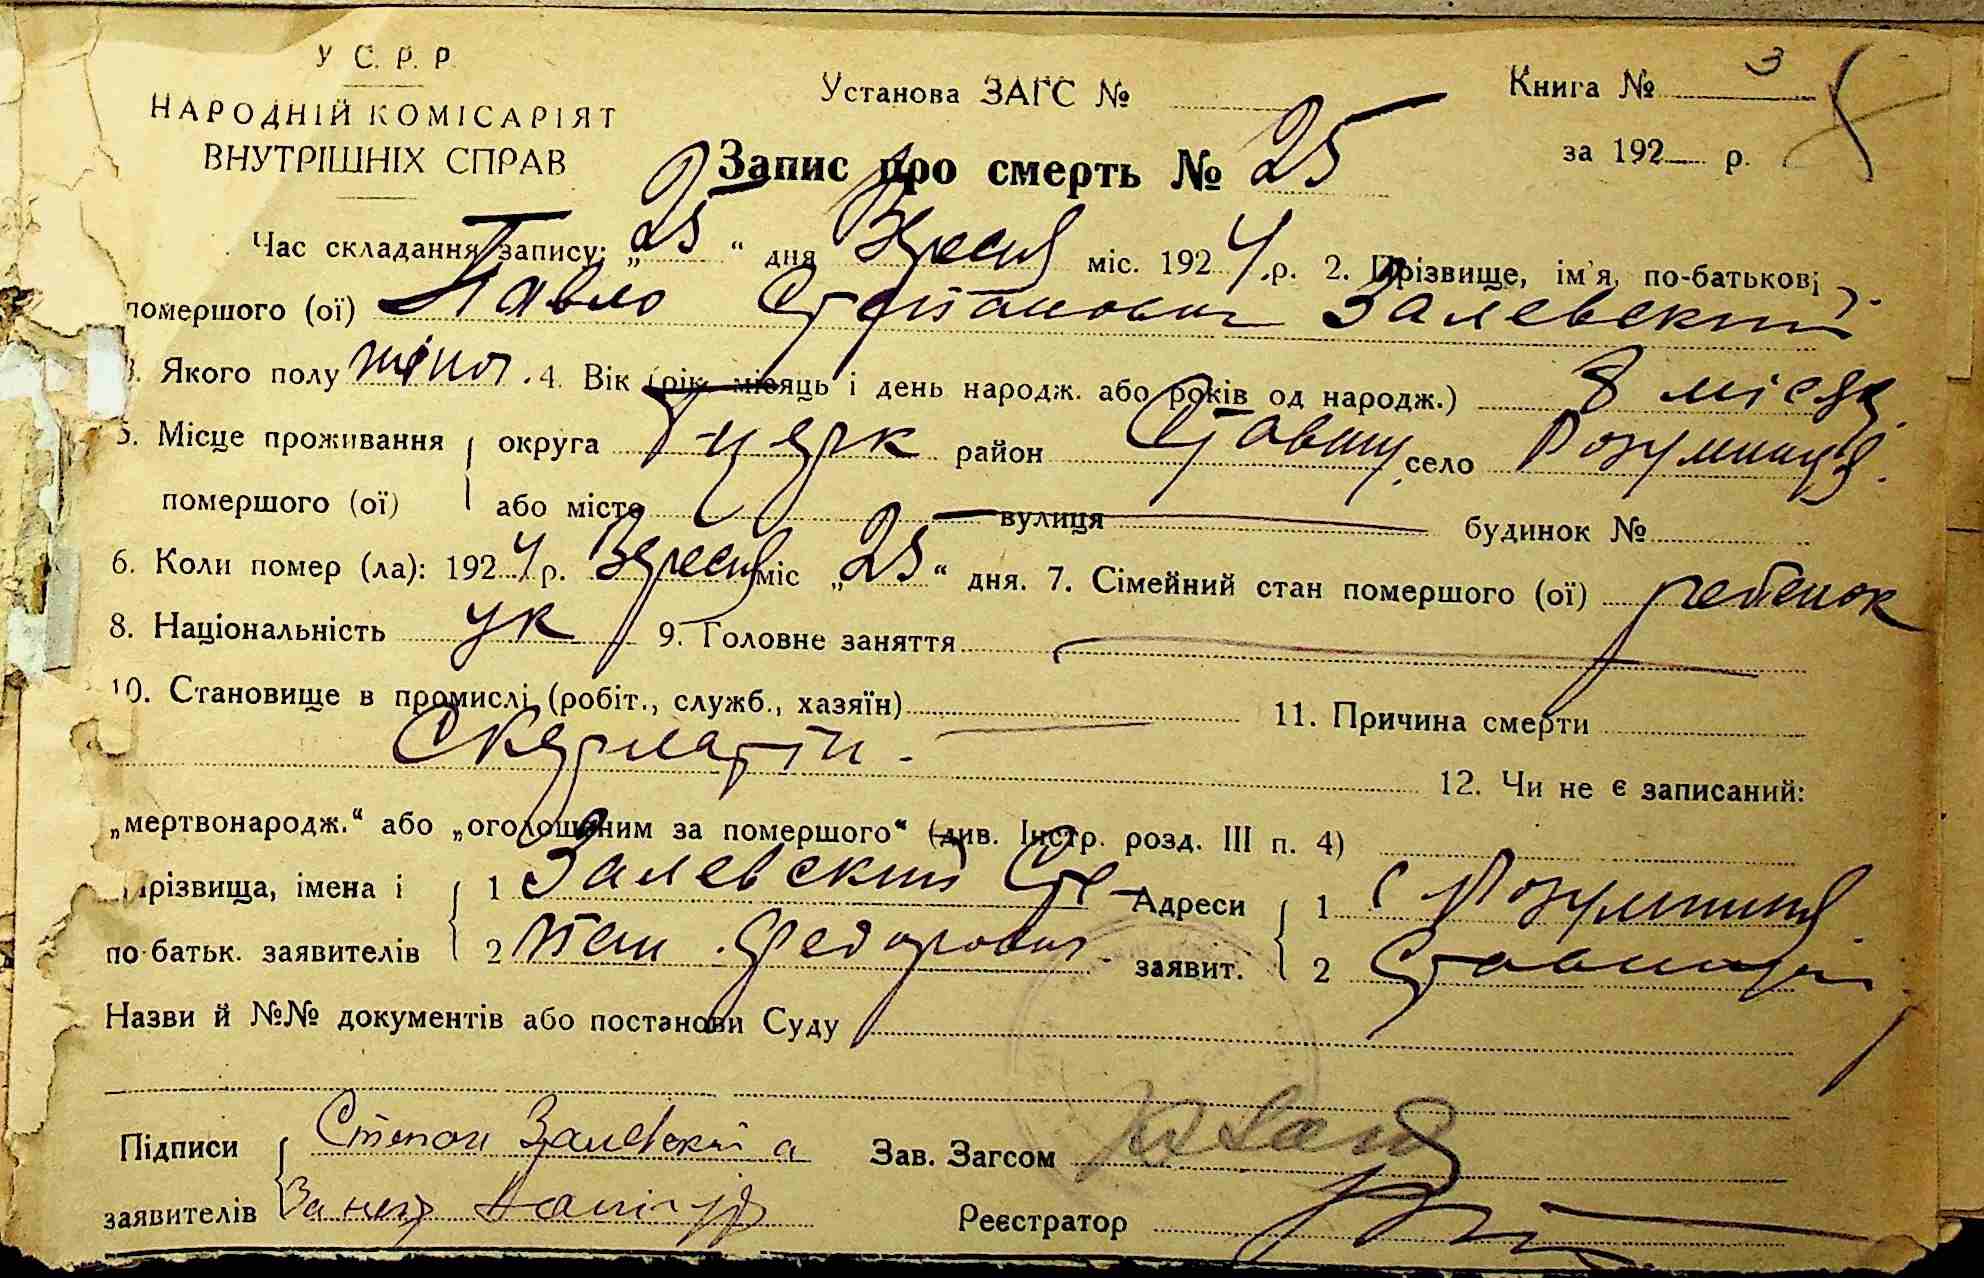 У С. Р. Р.
НАРОДНІЙ КОМІСАРІЯТ
ВНУТРІШНІХ СПРАВ
Установа ЗАГС №
Книга № 3
за 192 р.
Запис про смерть № 25
Час складання запису: „25“ дня Вересня міс. 1924 р. 2. Прізвище, ім'я, по-батькові
помершого (ої) Павло Степанович Залевский
3. Якого полу 4. Вік (рік, місяць і день народж. або років од народж.) 8 місяц
5. Місце проживання округа Б-церк район Ставищ. село Розумниця
помершого (ої) або місто вулиця будинок №
6. Коли помер (ла): 1924 р. Вересня міс „25“ дня. 7. Сімейний стан помершого (ої) ребенок
8. Національність ук 9. Головне заняття
10. Становище в промислі (робіт., служб., хазяїн) 11. Причина смерти
Скерлатін.
12. Чи не є записаний:
„мертвонародж.“ або „оголошеним за помершого“ (див. Інстр. розд. III п. 4)
Прізвища, імена і 1 Залевский Сте- Адреси 1 с Розумниця
по-батьк. заявителів 2 пан Федорович заявит. 2
Назви й №№ документів або постанови Суду
Підписи Степан Залевский а Зав. Загсом
заявителів За него Реєстратор